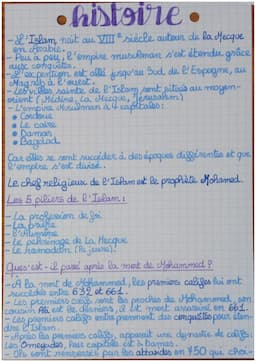 histoire
- L'Islam naît au VIII e siècle autour de la Mecque
en Arabie.
- Peu à peu, l'empire musulman s'est étendu grâce
aux conquêtes.
- L'expantion est allé jusqu'au Sud, de l'Espagne, au
Magreb à l'ouest.
- Les villes sainte de l'Islam sont situés au moyen-
orient (Médine, La Mecque, Jérusalem)
- L'empire Musulman à 4 capitales:
• Cordoue
• Le caire
• Damas
• Bagdad
Car elles se sont succéder à des époques différentes et que
l'empire, s'est divisé.
Le chef religieux de l'Islam est le prophète Mohamed.
Les 5 piliers de l'Islam:
- La profession de foi
- La prière
- L'Aumône
- Le pélerinage de La Mecque
- Le Ramadan (le jeûne).
Ques'est-il passé après la mort de Mohammed?
- À la mort de Mohammed, les premiers califes lui ont
succédés entre 632 et 661.
- Les premiers califs sont les proches de Mohammed, son
cousin Ali est le derniers, il est mort assassiné en 661.
- Les premiers califes entreprennent des conquêtes pour éten-
dre l'Islam.
- Après les premiers califs, apparait une dynastie de califs:
Les Omeyades, leur capitale est à Damas.
- Ils sont renversés par les abbasides en 750 qui, chan-